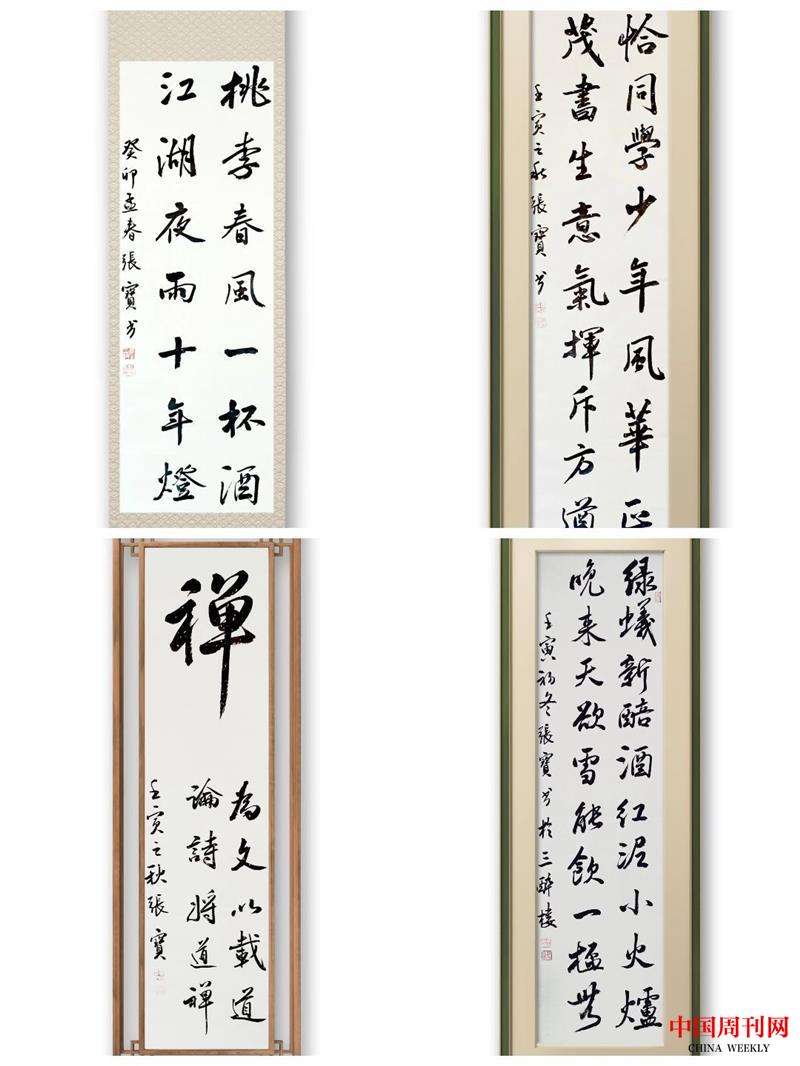 桃李春風一杯酒
江湖夜雨十年燈
癸卯孟春張寶书
恰同學少年風華正
茂書生意氣揮斥方遒
壬寅之秋張寶书
禅
為文以載道
論詩將道禅
壬寅之秋張寶
绿蟻新醅酒红泥小火爐
晚来天欲雪能飲一極無
壬寅初冬張寶书於三醉樓
中国周刊网
CHINA WEEKLY